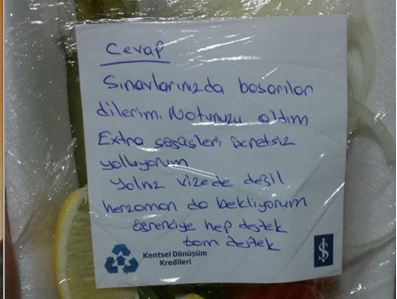 Cevap
Sınavlarınızda başarılar
dilerim. Notunuzu aldım
Extra sosasleri ücretsiz
yolluyorum
Yalnız vizede değil
herzaman da bekliyorum
öğrenciye hep destek
tam destek
Kentsel Dönüşüm
Kredileri